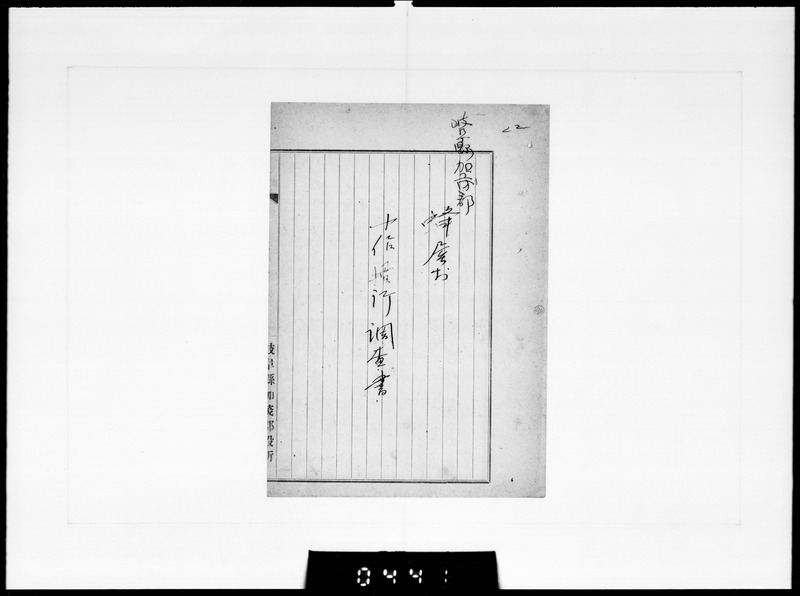 岐阜縣加茂郡
蜂屋村
小作慣行調査書
岐阜縣加茂郡役所
0441